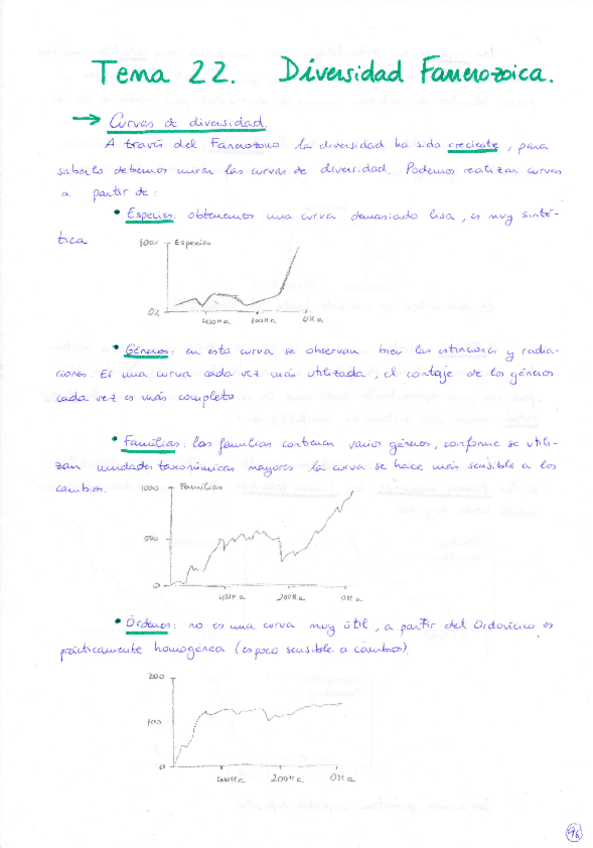 Tema 22. Diversidad Fanerozoica.
→ Curvas de diversidad.
A través del Fanerozoico la diversidad ha sido creciente, para
saberlo debemos mirar las curvas de diversidad. Podemos realizar curvas
a partir de:
• Especies: obtenemos una curva demasiado lisa, es muy sinté-
tica
1000 Especies
0%
400Ma 200Ma 0Ma
• Géneros: en esta curva se observan bien las extinciones y radia-
ciones. Es una curva cada vez más utilizada, el contaje de los géneros
cada vez es más completo
• Familias: las familias contienen varios géneros, conforme se utili-
zan unidades taxonómicas mayores la curva se hace más sensible a los
cambios.
1000 Familias
500
0
400Ma 200Ma 0Ma
• Órdenes: no es una curva muy útil, a partir del Ordovícico es
prácticamente homogénea (es poco sensible a cambios).
200
100
0
400Ma 200Ma 0Ma
96